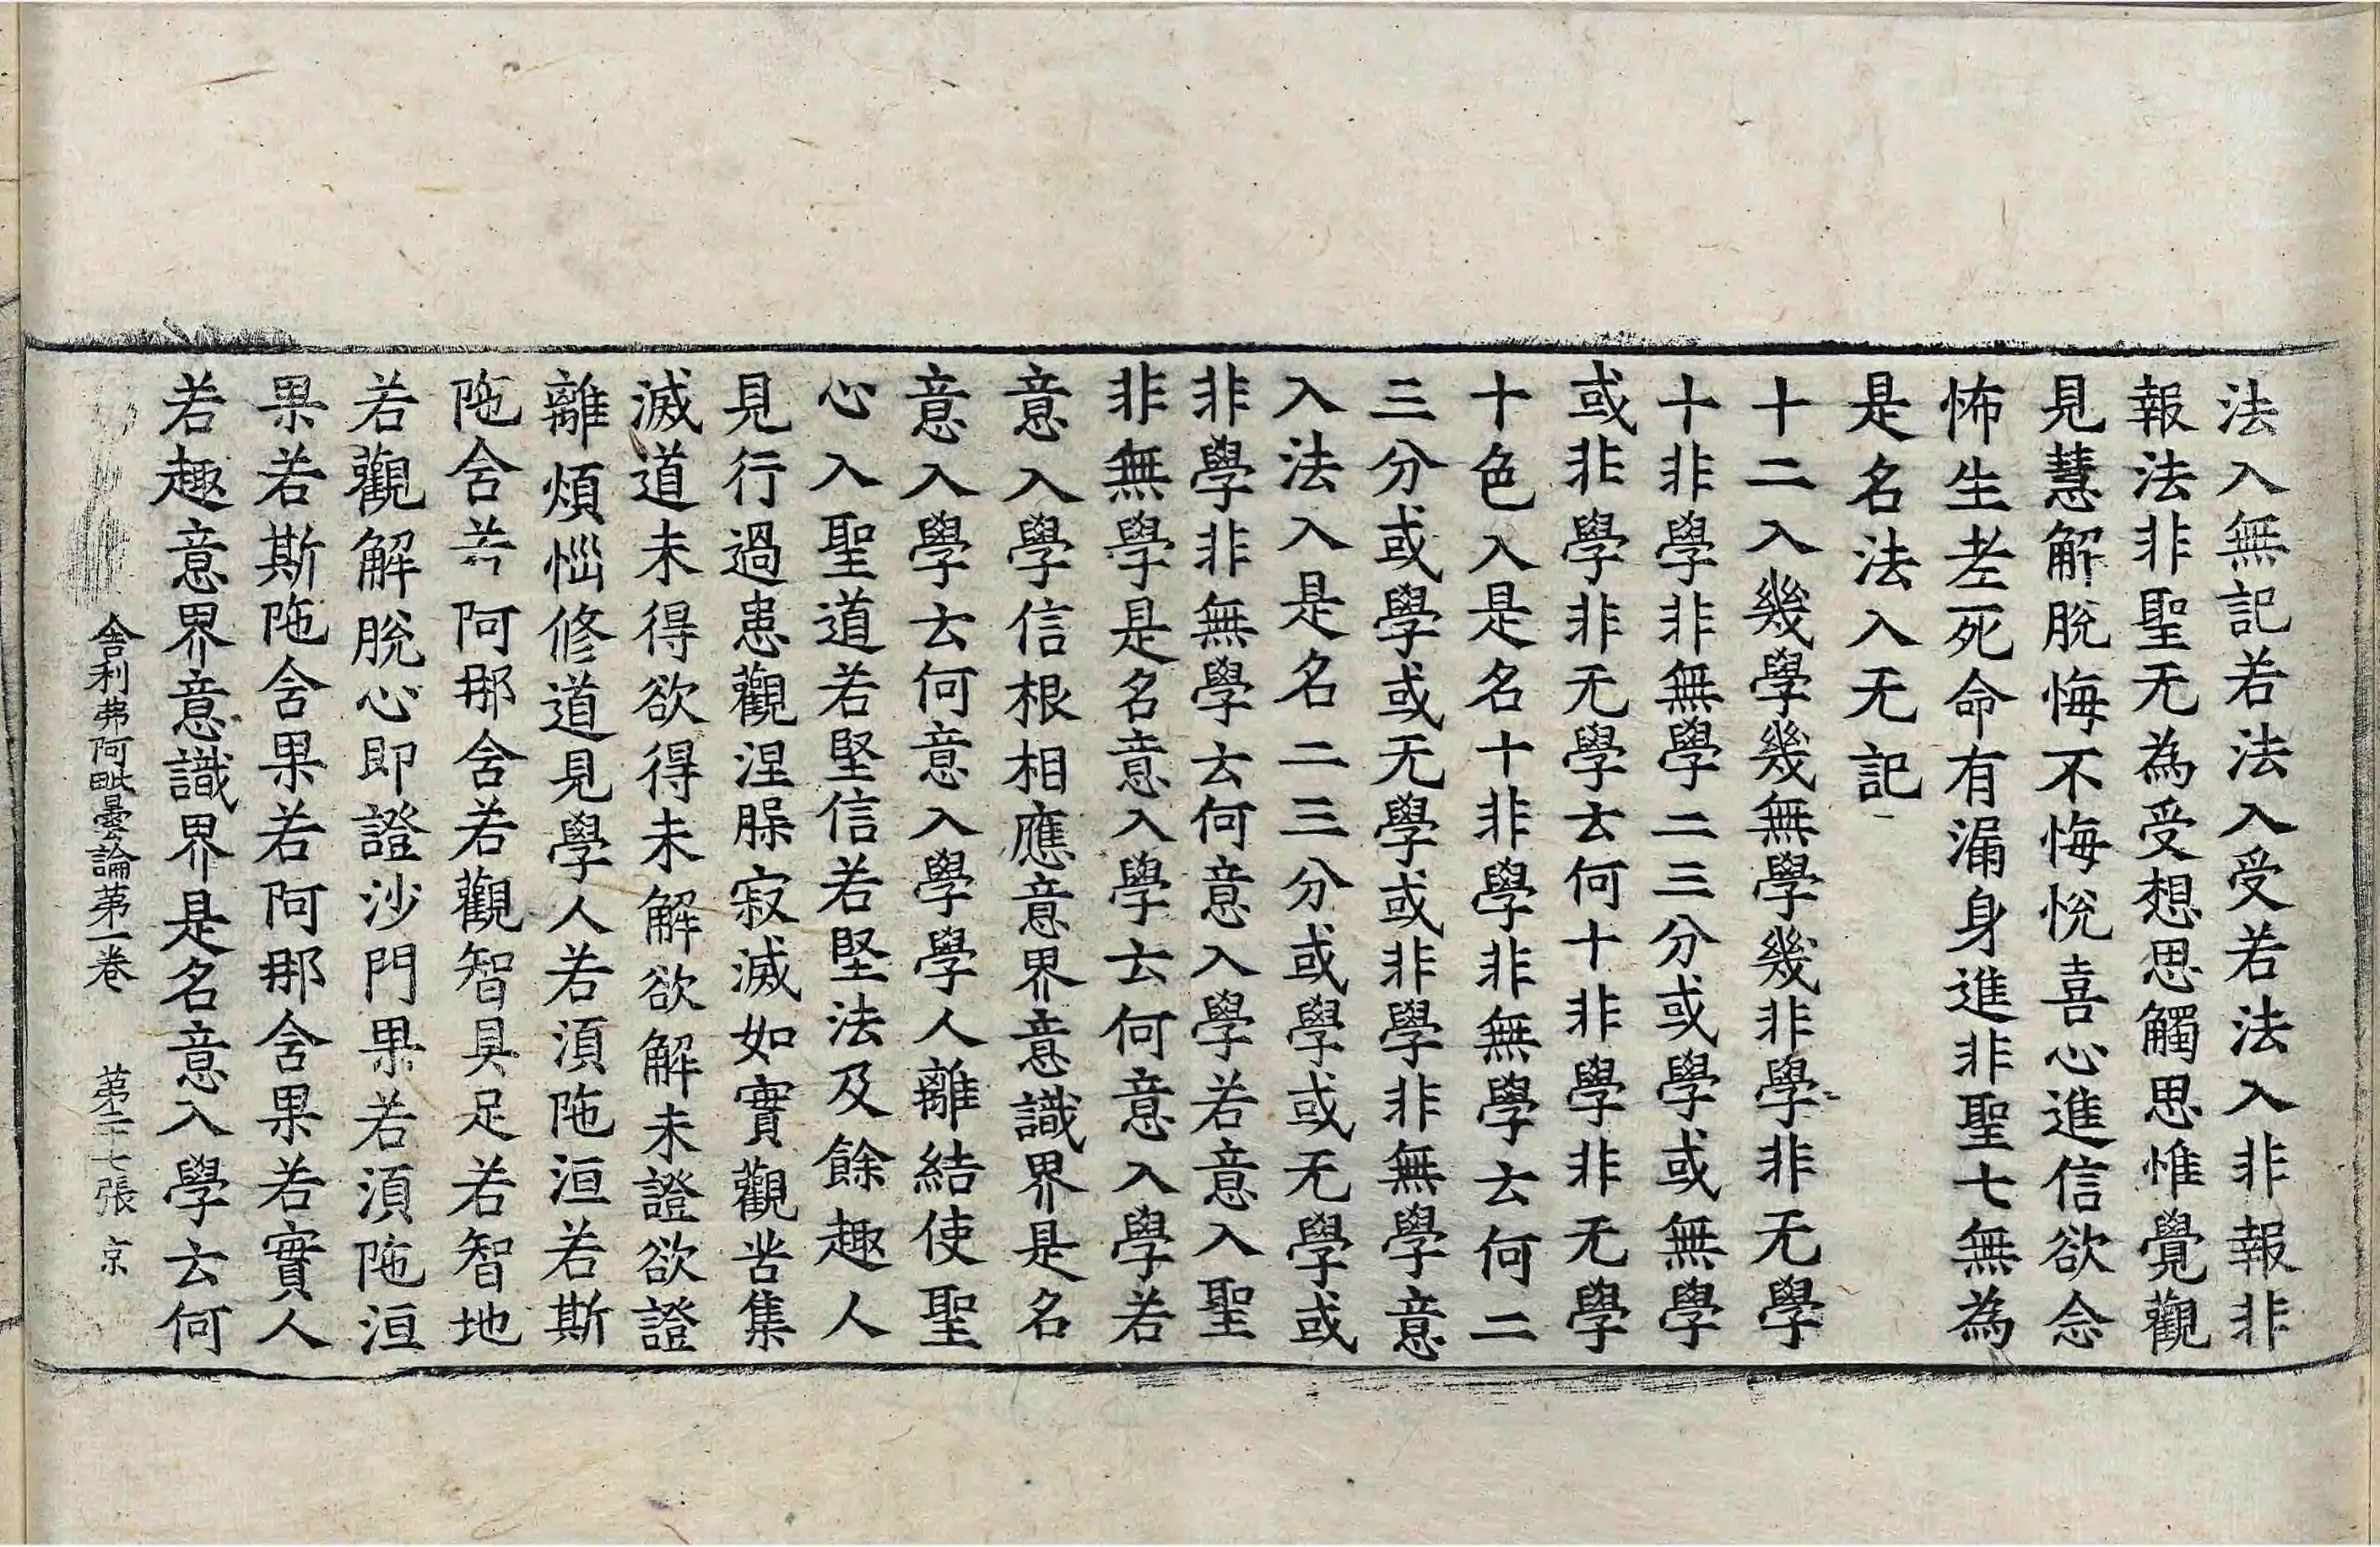 法入無記若法入受若法入非報非
報法非聖无為受想思觸思惟覺觀
見慧解脫悔不悔悅喜心進信欲念
怖生老死命有漏身進非聖七無為
是名法入无記
十二入幾學幾無學幾非學非无學
十非學非無學二三分或學或無學
或非學非无學云何十非學非无學
十色入是名十非學非無學云何二
三分或學或无學或非學非無學意
入法入是名二三分或學或无學或
非學非無學云何意入學若意入聖
非無學是名意入學云何意入學若
意入學信根相應意界意識界是名
意入學云何意入學學人離結使聖
心入聖道若堅信若堅法及餘趣人
見行過患觀涅槃寂滅如實觀苦集
滅道未得欲得未解欲解未證欲證
離煩惱修道見學人若湏陁洹若斯
陁含若阿那含若觀智具足若智地
若觀解脫心即證沙門果若湏陁洹
果若斯陁含果若阿那含果若實人
若趣意界意識界是名意入學云何
舍利弗阿毗曇論苐一卷 苐二十七張 京